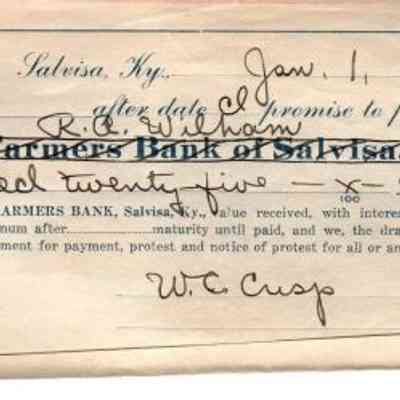 Salvisa, Ky., Jan. 1,
after date I promise to
R. A. Wilham
Farmers Bank of Salvisa,
twenty-five — x —
100
ARMERS BANK, Salvisa, Ky., Value received, with interes
num after maturity until paid, and we, the dra
ment for payment, protest and notice of protest for all or an
W. C. Crisp